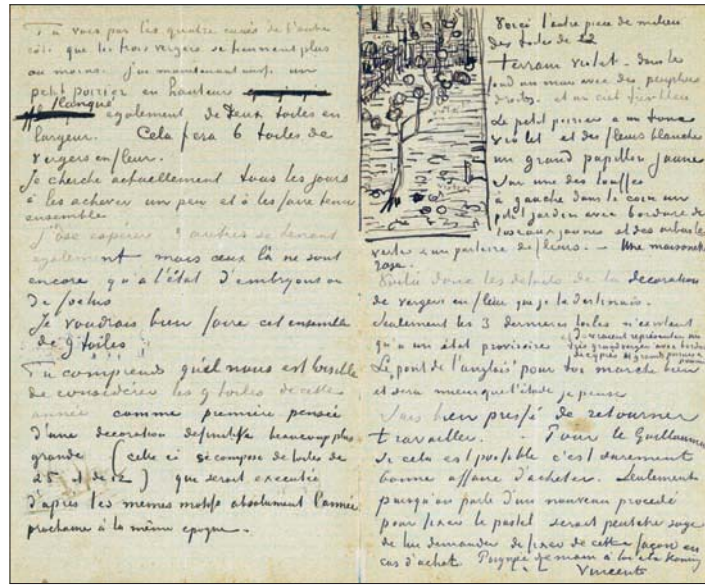 Tu vois par les quatre carrés de l'autre
côté que les trois vergers se tiennent plus
ou moins. j'ai maintenant aussi un
petit poirier en hauteur
flanqué également de deux toiles en
largeur. Cela fera 6 toiles de
vergers en fleur.
Je cherche actuellement tous les jours
à les achever un peu et à les faire tenir
ensemble
J'ose espérer 3 autres se tenant
également mais ceux là ne sont
encore qu'à l'état d'embryons ou
de foetus
Je voudrais bien faire cet ensemble
de 9 toiles
Tu comprends qu'il nous est loisible
de considérer les 9 toiles de cette
année comme première pensée
d'une decoration definitive beaucoup plus
grande (celle ci se compose de toiles de
25 et de 12) qui serait executée
d'après les mêmes motifs absolument l'année
prochaine à la même epoque.
Voici l'autre piece de milieu
des toiles de 12
terrain violet – dans le
fond un mur avec des peupliers
droits – et un ciel très bleu
Le petit poirier a un tronc
violet et des fleurs blanches
un grand papillon jaune
sur une des touffes
à gauche dans le coin un
petit jardin avec bordure de
roseaux jaunes et des arbustes
verts & un parterre de fleurs. – Une maisonette
rose.
Voilà donc les details de la decoration
de vergers en fleur que je te destinais.
Seulement les 3 dernieres toiles n'existent
qu'à un état provisoire et devraient représenter un
très grand verger avec bordure
de cyprès & grands poiriers & pommiers
Le pont de l'anglais pour toi marche bien
et sera mieux que l'étude je pense
Suis bien pressé de retourner
travailler. – Pour le Guillaumin
si cela est possible c'est surement
bonne affaire d'acheter. Seulement
puisqu'on parle d'un nouveau procedé
pour fixer le pastel serait peutetre sage
de lui demander de fixer de cette façon en
cas d'achat. Poignée de main à toi & à Koning
Vincent